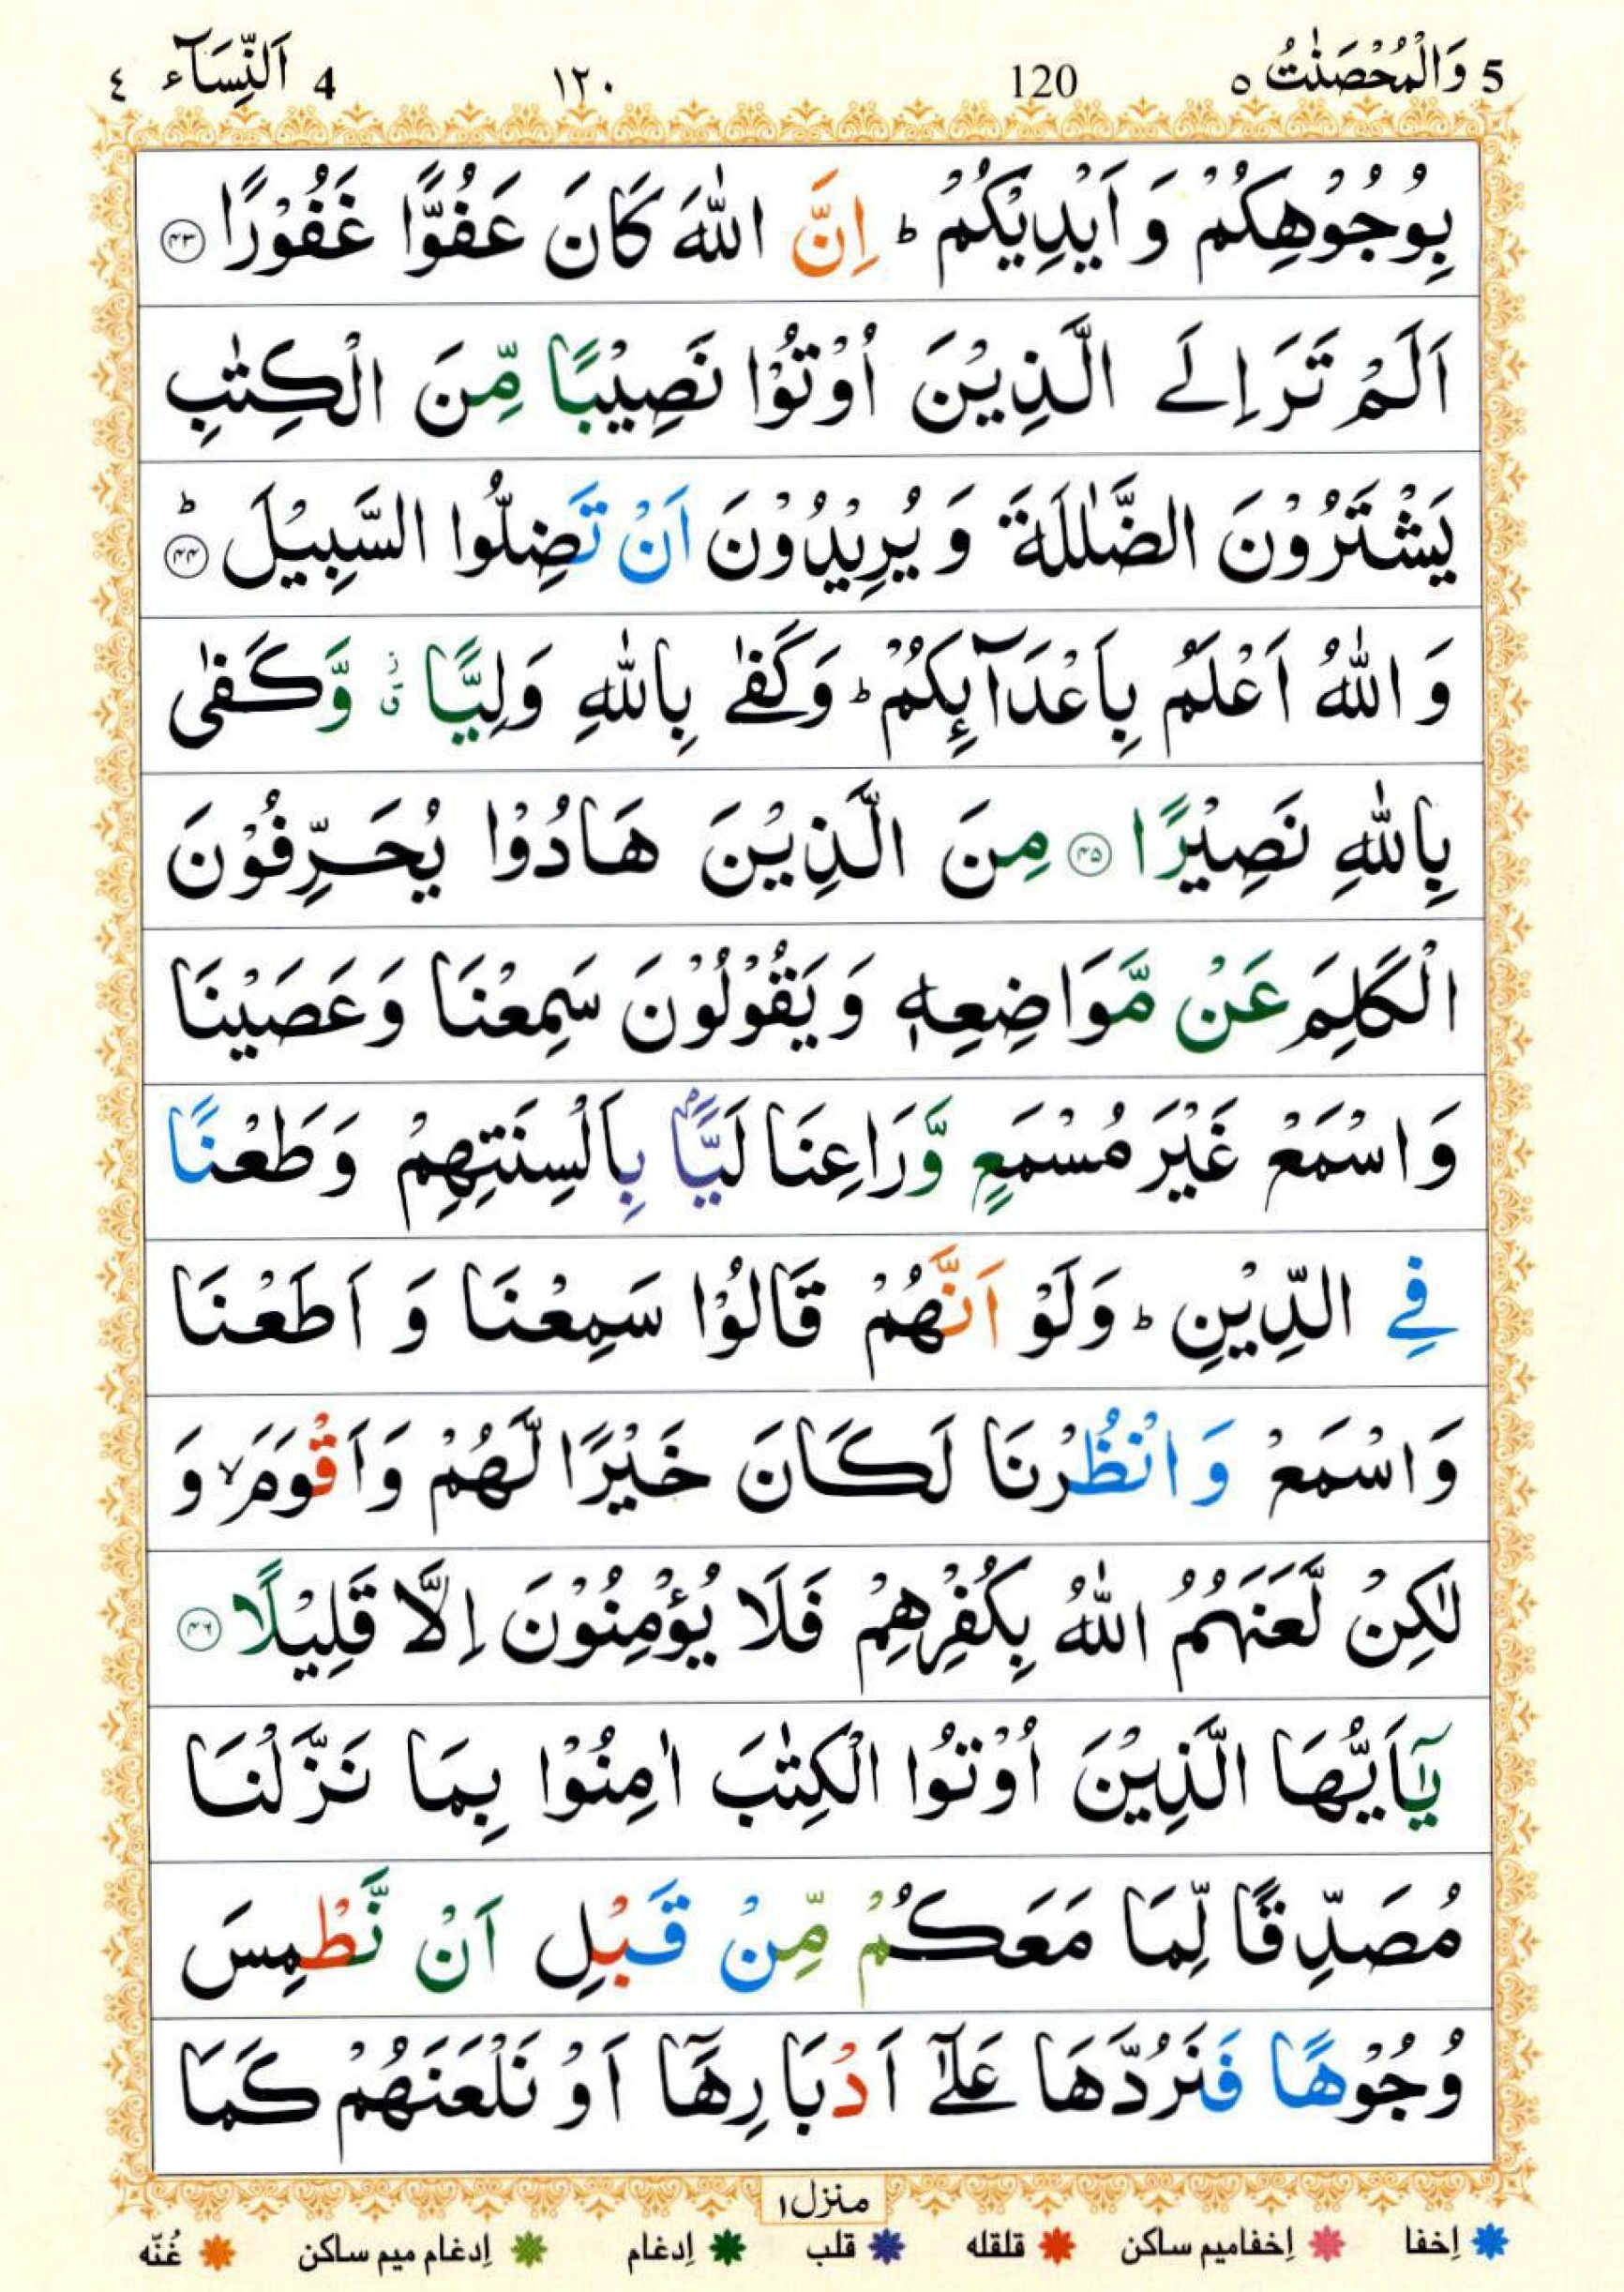 5 وَالْمُحْصَنٰتُ ٥ 120 ١٢٠ 4 اَلنِّسَآء ٤
بِوُجُوْهِكُمْ وَ اَيْدِيْكُمْ ؕ اِنَّ اللّٰهَ كَانَ عَفُوًّا غَفُوْرًا ۴۳
اَلَمْ تَرَ اِلَے الَّذِيْنَ اُوْتُوْا نَصِيْبًا مِّنَ الْكِتٰبِ
يَشْتَرُوْنَ الضَّلٰلَةَ وَ يُرِيْدُوْنَ اَنْ تَضِلُّوا السَّبِيْلَ ؕ ۴۴
وَ اللّٰهُ اَعْلَمُ بِاَعْدَآئِكُمْ ؕ وَكَفٰے بِاللّٰهِ وَلِيًّا ۫ۙ وَّكَفٰى
بِاللّٰهِ نَصِيْرًا ۴۵ مِنَ الَّذِيْنَ هَادُوْا يُحَرِّفُوْنَ
الْكَلِمَ عَنْ مَّوَاضِعِهٖ وَ يَقُوْلُوْنَ سَمِعْنَا وَعَصَيْنَا
وَ اسْمَعْ غَيْرَ مُسْمَعٍ وَّرَاعِنَا لَيًّۢا بِاَلْسِنَتِهِمْ وَطَعْنًا
فِے الدِّيْنِ ؕ وَلَوْ اَنَّهُمْ قَالُوْا سَمِعْنَا وَ اَطَعْنَا
وَاسْمَعْ وَ انْظُرْنَا لَكَانَ خَيْرًا لَّهُمْ وَاَقْوَمَ ۙ وَ
لٰكِنْ لَّعَنَهُمُ اللّٰهُ بِكُفْرِهِمْ فَلَا يُؤْمِنُوْنَ اِلَّا قَلِيْلًا ۴۶
يٰۤاَيُّهَا الَّذِيْنَ اُوْتُوا الْكِتٰبَ اٰمِنُوْا بِمَا نَزَّلْنَا
مُصَدِّقًا لِّمَا مَعَكُمْ مِّنْ قَبْلِ اَنْ نَّطْمِسَ
وُجُوْهًا فَنَرُدَّهَا عَلٰۤے اَدْبَارِهَاۤ اَوْ نَلْعَنَهُمْ كَمَا
منزل۱
اِخفا اِخفامیم ساکن قلقله قلب اِدغام اِدغام میم ساکن غُنّه